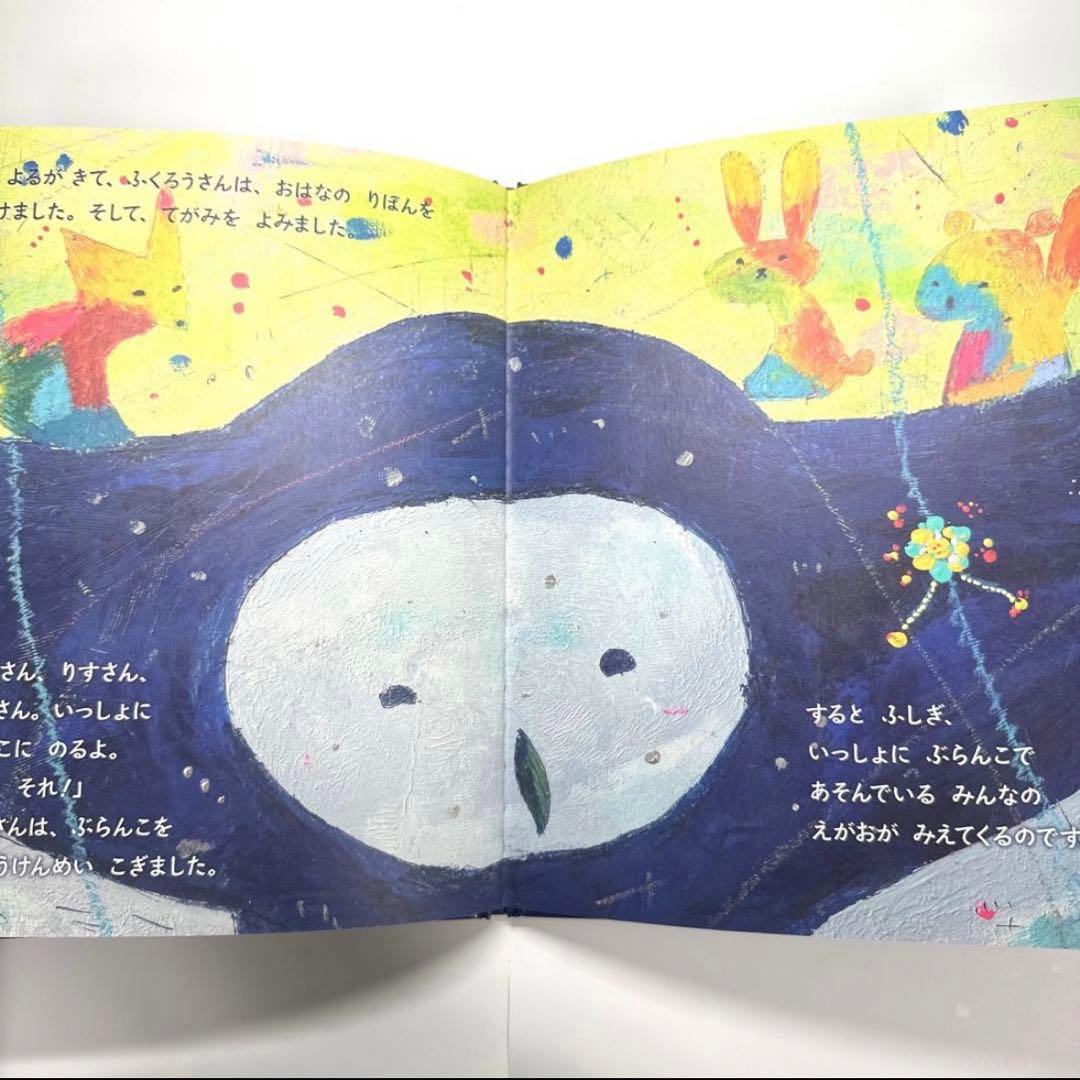 よるが きて、ふくろうさんは、おはなの りぼんを
けました。そして、てがみを よみました。
さん、りすさん、
さん。いっしょに
こに のるよ。
それ!」
さんは、ぶらんこを
うけんめい こぎました。
すると ふしぎ、
いっしょに ぶらんこで
あそんでいる みんなの
えがおが みえてくるのです